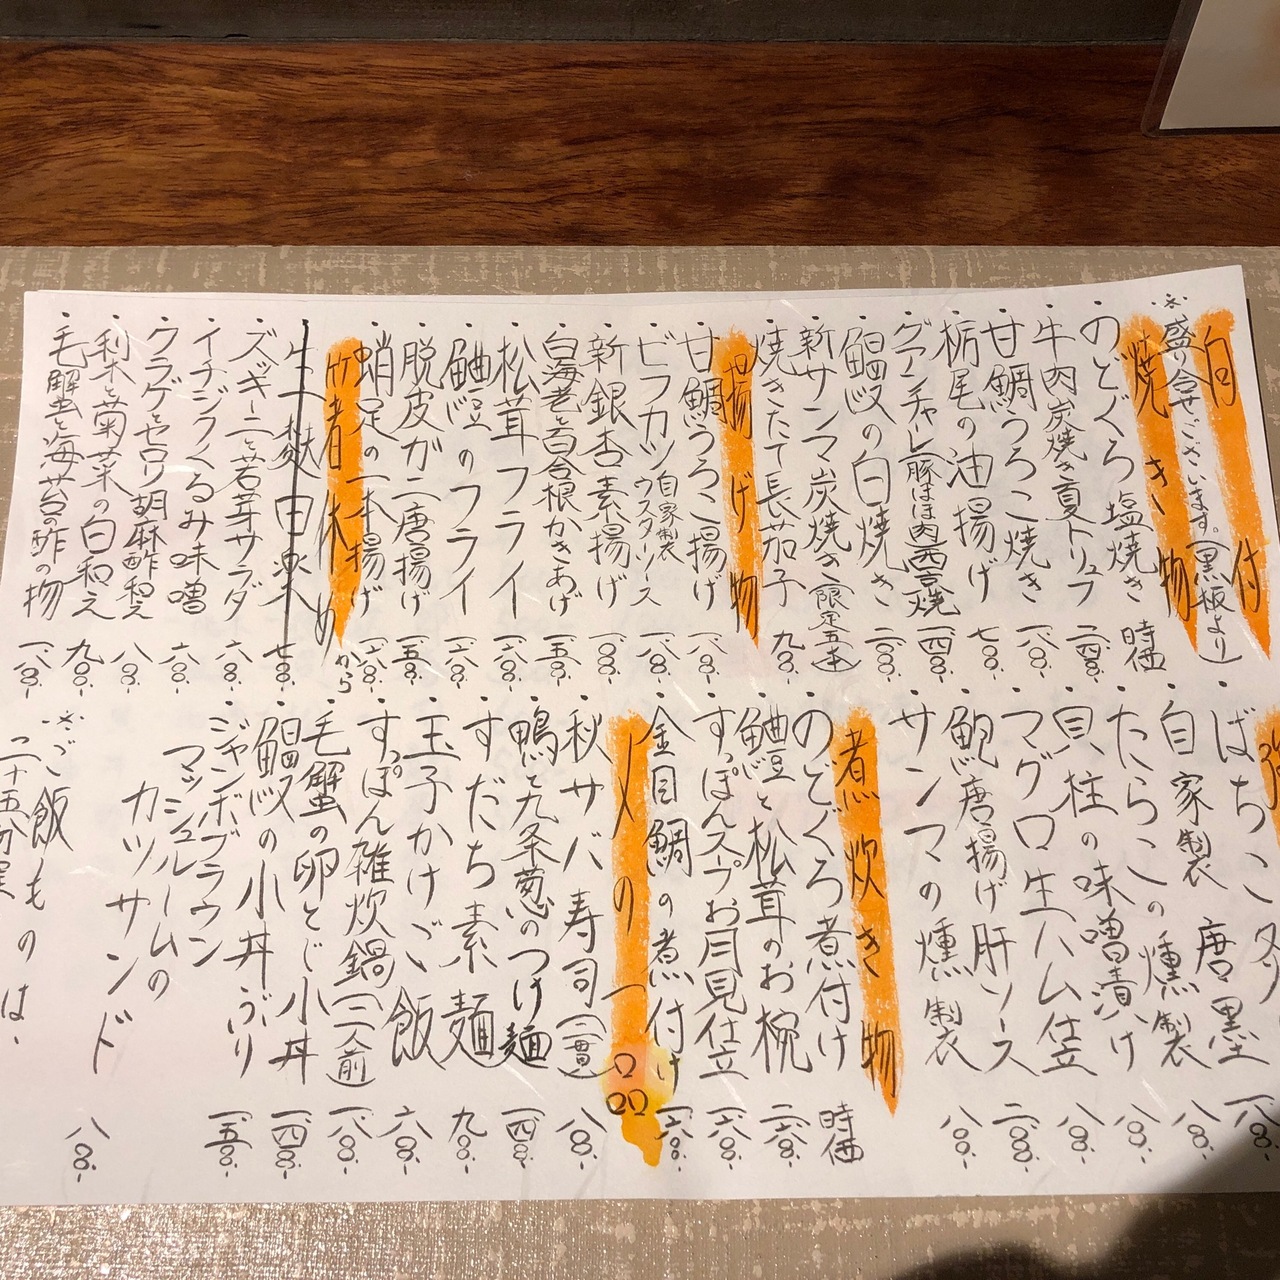 向付
※盛り合せございます。(黒板より)
焼き物
・のどぐろ塩焼き 時価
・牛肉炭焼き夏トリュフ 二、四〇〇.-
・甘鯛うろこ焼き 一、八〇〇.-
・栃尾の油揚げ 七〇〇.-
・グアンチャーレ(豚ほほ肉)西京焼 一、四〇〇.-
・鰻の白焼き 二、〇〇〇.-
・新サンマ炭焼き(限定五本)
・焼きたて長茄子 九〇〇.-
揚げ物
・甘鯛うろこ揚げ 一、八〇〇.-
・ビフカツ 自家製ウスターソース 一、八〇〇.-
・新銀杏素揚げ
・白海老と百合根かきあげ 一、五〇〇.-
・松茸フライ
・鱧のフライ 一、六〇〇.-
・脱皮ガニ唐揚げ 一、五〇〇.-
・蛸足の一本揚げ
箸休め
から
・生麩田楽 七〇〇.-
・ズッキーニと若芽サラダ 六〇〇.-
・イチジクくるみ味噌 六〇〇.-
・クラゲとセロリ胡麻酢和え 八〇〇.-
・梨と菊菜の白和え 九〇〇.-
・毛蟹と海苔の酢の物 一、八〇〇.-
・ばちこ
・自家製唐墨 一、八〇〇.-
・たらこの燻製 八〇〇.-
・貝柱の味噌漬け 一、八〇〇.-
・マグロ生ハム仕立 一、八〇〇.-
・鮑唐揚げ肝ソース 二、〇〇〇.-
・サンマの燻製 八〇〇.-
煮炊き物
・のどぐろ煮付け 時価
・鱧と松茸のお椀 二、八〇〇.-
・すっぽんスープお月見仕立 一、六〇〇.-
・金目鯛の煮付け 一、八〇〇.-
〆の一品
・秋サバ寿司(二貫) 八〇〇.-
・鴨と九条葱のつけ麺 一、四〇〇.-
・すだち素麺 九〇〇.-
・玉子かけご飯 六〇〇.-
・すっぽん雑炊鍋(二人前) 一、八〇〇.-
・毛蟹の卵とじ小丼 一、四〇〇.-
・鰻の小丼ぶり 一、五〇〇.-
・ジャンボブラウン
マッシュルームの
カツサンド 八〇〇.-
※ご飯ものは、
二十五分程